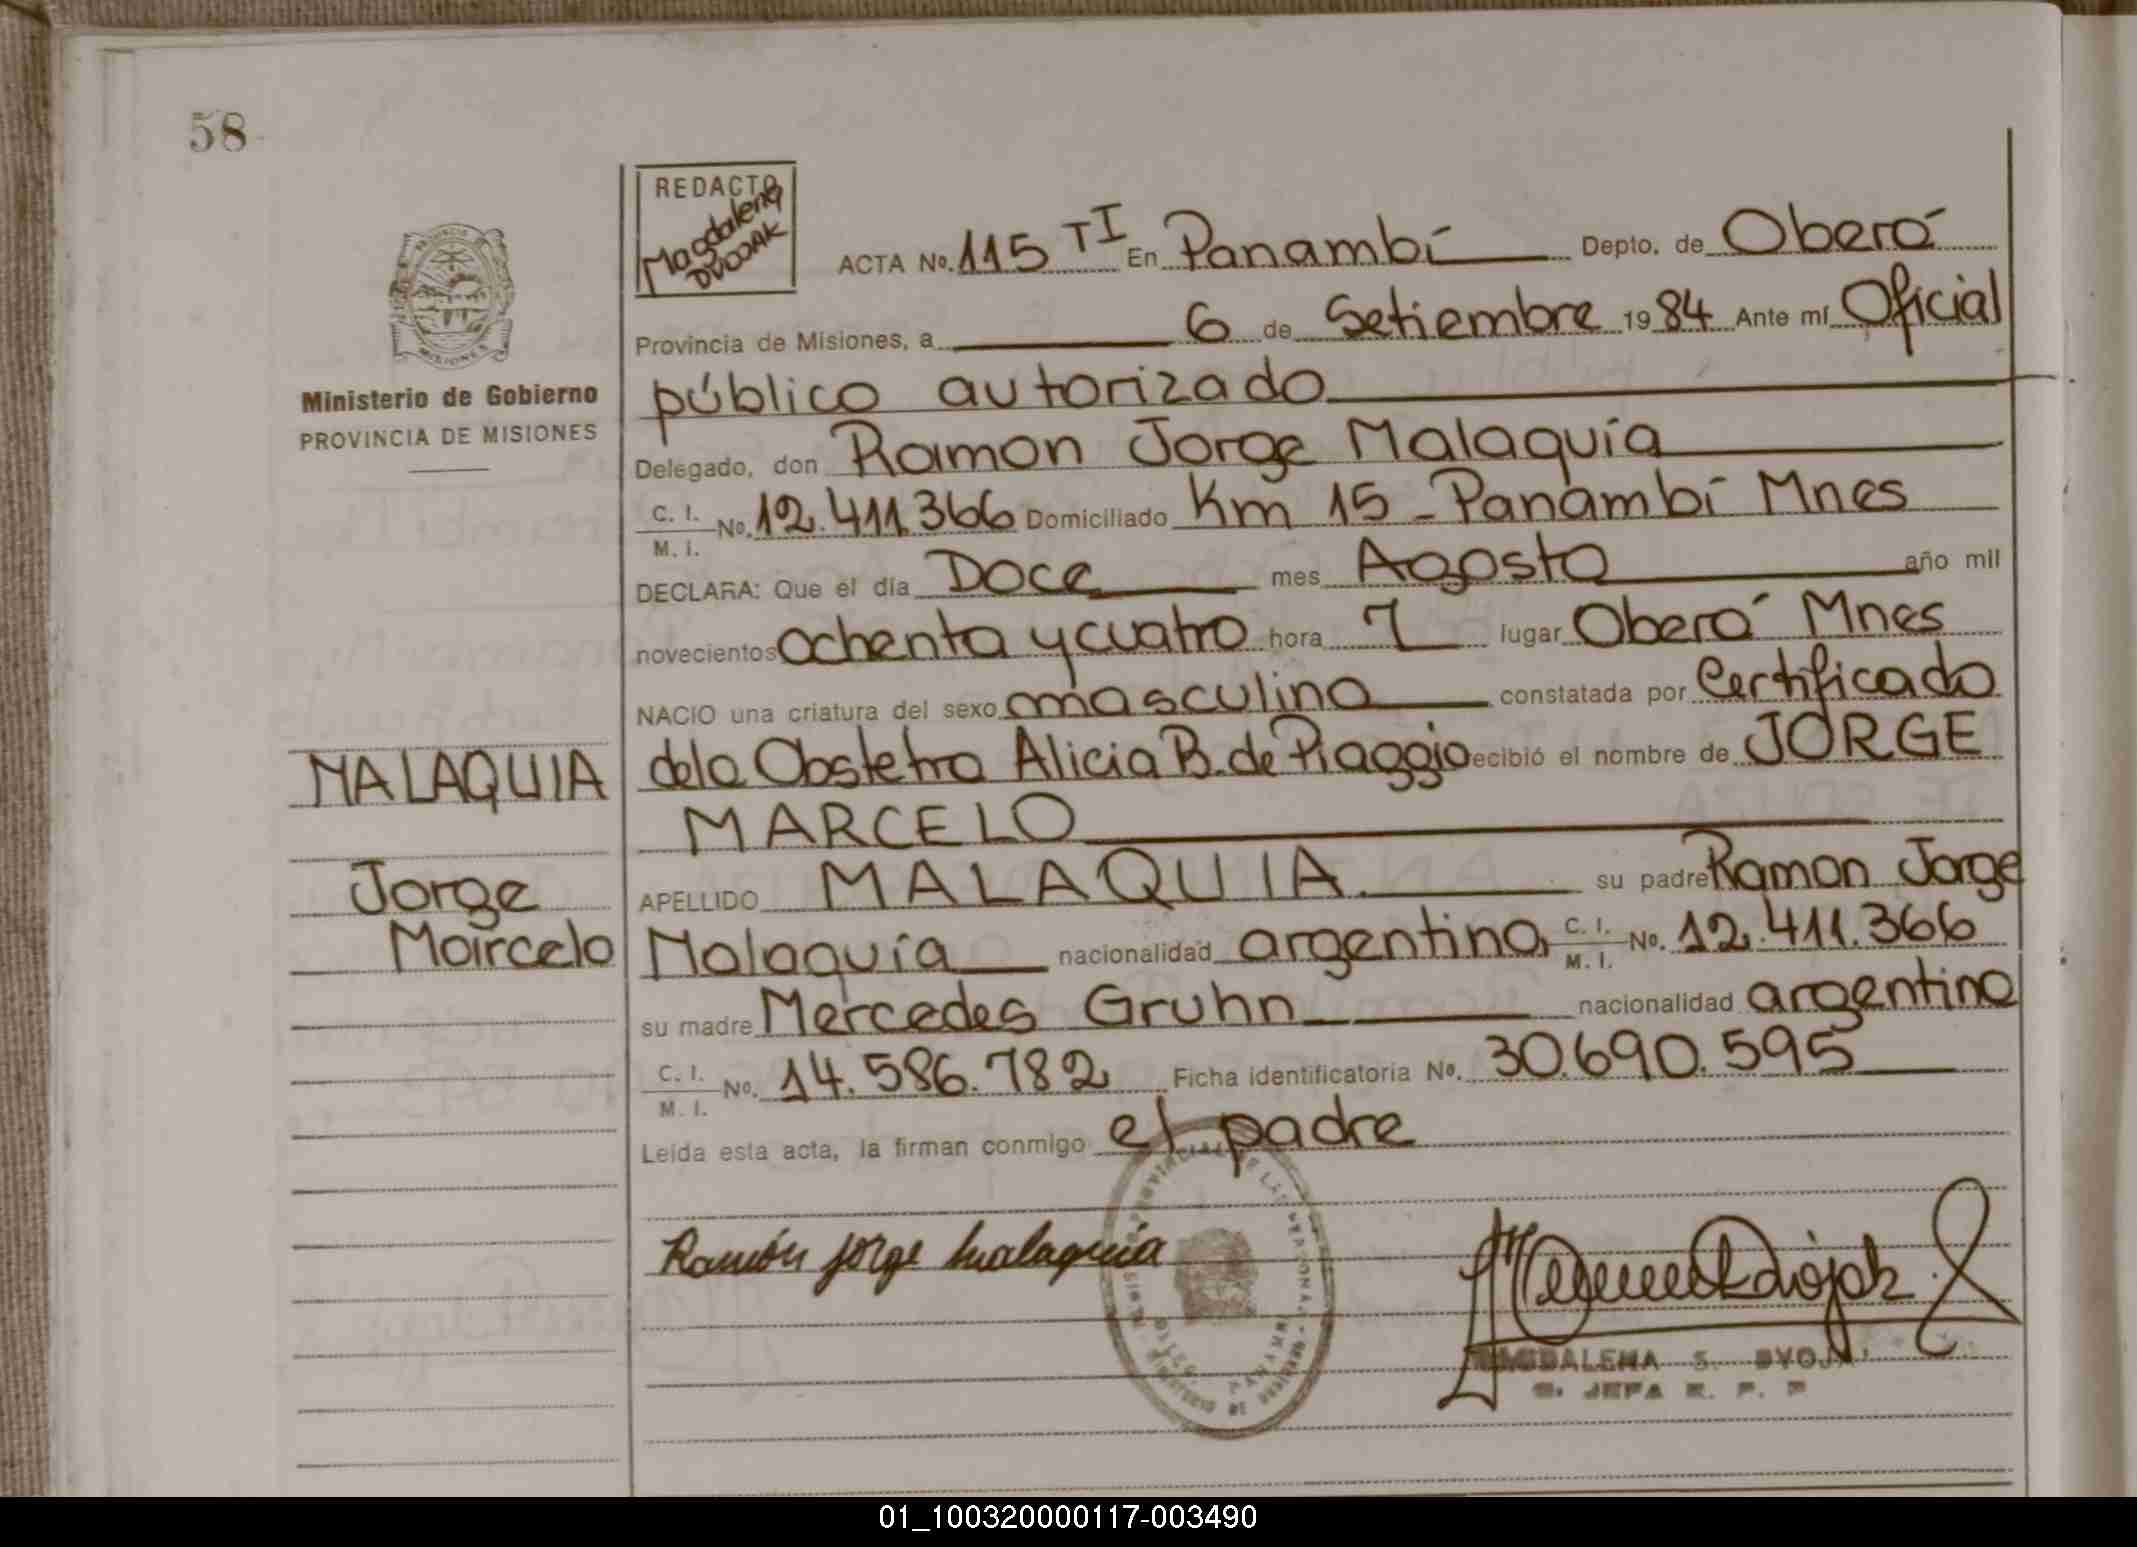 58
REDACTO
Magdalena
DVOJAK
ACTA No. 115 TI En Panambí Depto. de Oberá
Provincia de Misiones, a 6 de Setiembre 1984 Ante mí Oficial
público autorizado
Delegado, don Ramon Jorge Malaquía
C. I. M. I. No. 12.411.366 Domiciliado Km 15 - Panambí Mnes
DECLARA: Que el día Doce mes Agosto año mil
novecientos ochenta y cuatro hora 7 lugar Oberá Mnes
NACIO una criatura del sexo masculino constatada por Certificado
de la Obstetra Alicia B. de Piaggio ecibió el nombre de JORGE
MARCELO
APELLIDO MALAQUIA su padre Ramon Jorge
Malaquía nacionalidad argentina C. I. M. I. No. 12.411.366
su madre Mercedes Gruhn nacionalidad argentina
C. I. M. I. No. 14.586.782 Ficha identificatoria No. 30.690.595
Leída esta acta, la firman conmigo el padre
Ramón Jorge Malaquía
MAGDALENA S. DVOJA
JEFA R. P. P
PROVINCIA
MISIONES
Ministerio de Gobierno
PROVINCIA DE MISIONES
MALAQUIA
Jorge
Marcelo
01_100320000117-003490